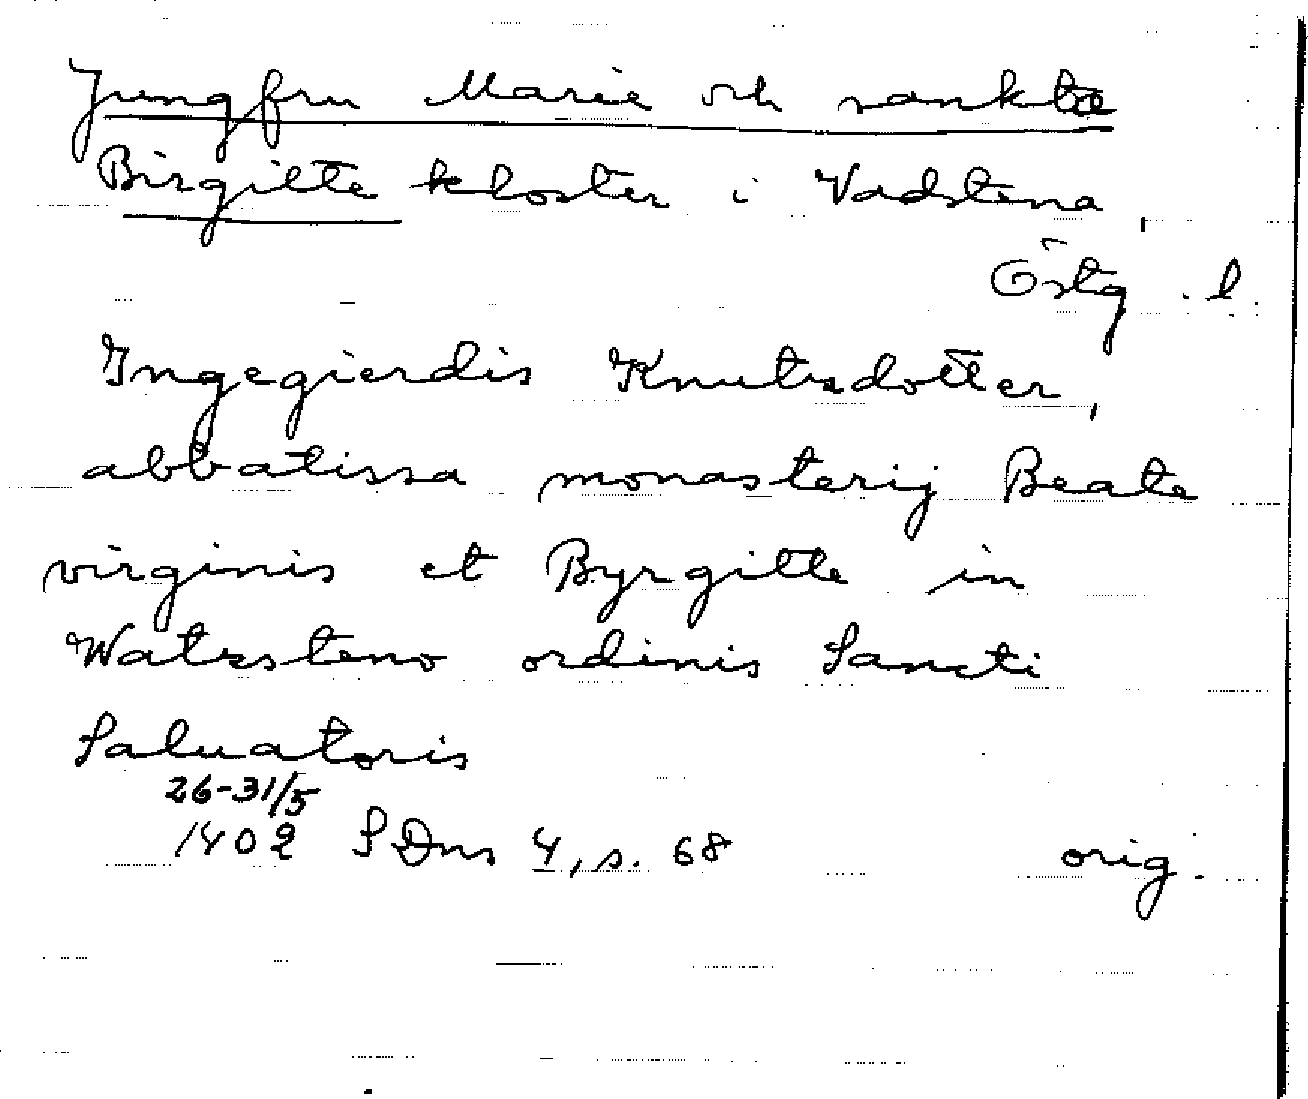 Jungfru Marie och sankta
Birgitte kloster i Vadstena,
Östg. l.
Ingegierdis Knutzdotter,
abbatissa monasterij Beate
virginis et Byrgitte in
Watzsteno ordinis Sancti
Saluatoris
26-31/5
1402 SDns 4, s. 68 orig.